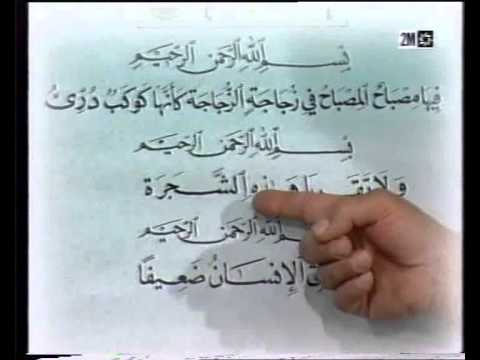 2M
بِسْمِ اللهِ الرَّحْمَنِ الرَّحِيْمِ
فِيهَا مِصْبَاحٌ الْمِصْبَاحُ فِي زُجَاجَةٍ الزُّجَاجَةُ كَأَنَّهَا كَوْكَبٌ دُرِّيٌّ
بِسْمِ اللهِ الرَّحْمَنِ الرَّحِيمِ
وَلَا الشَّجَرَةَ
اللهِ الرَّحْمَنِ الرَّحِيْمِ
الْإِنْسَانُ ضَعِيفًا